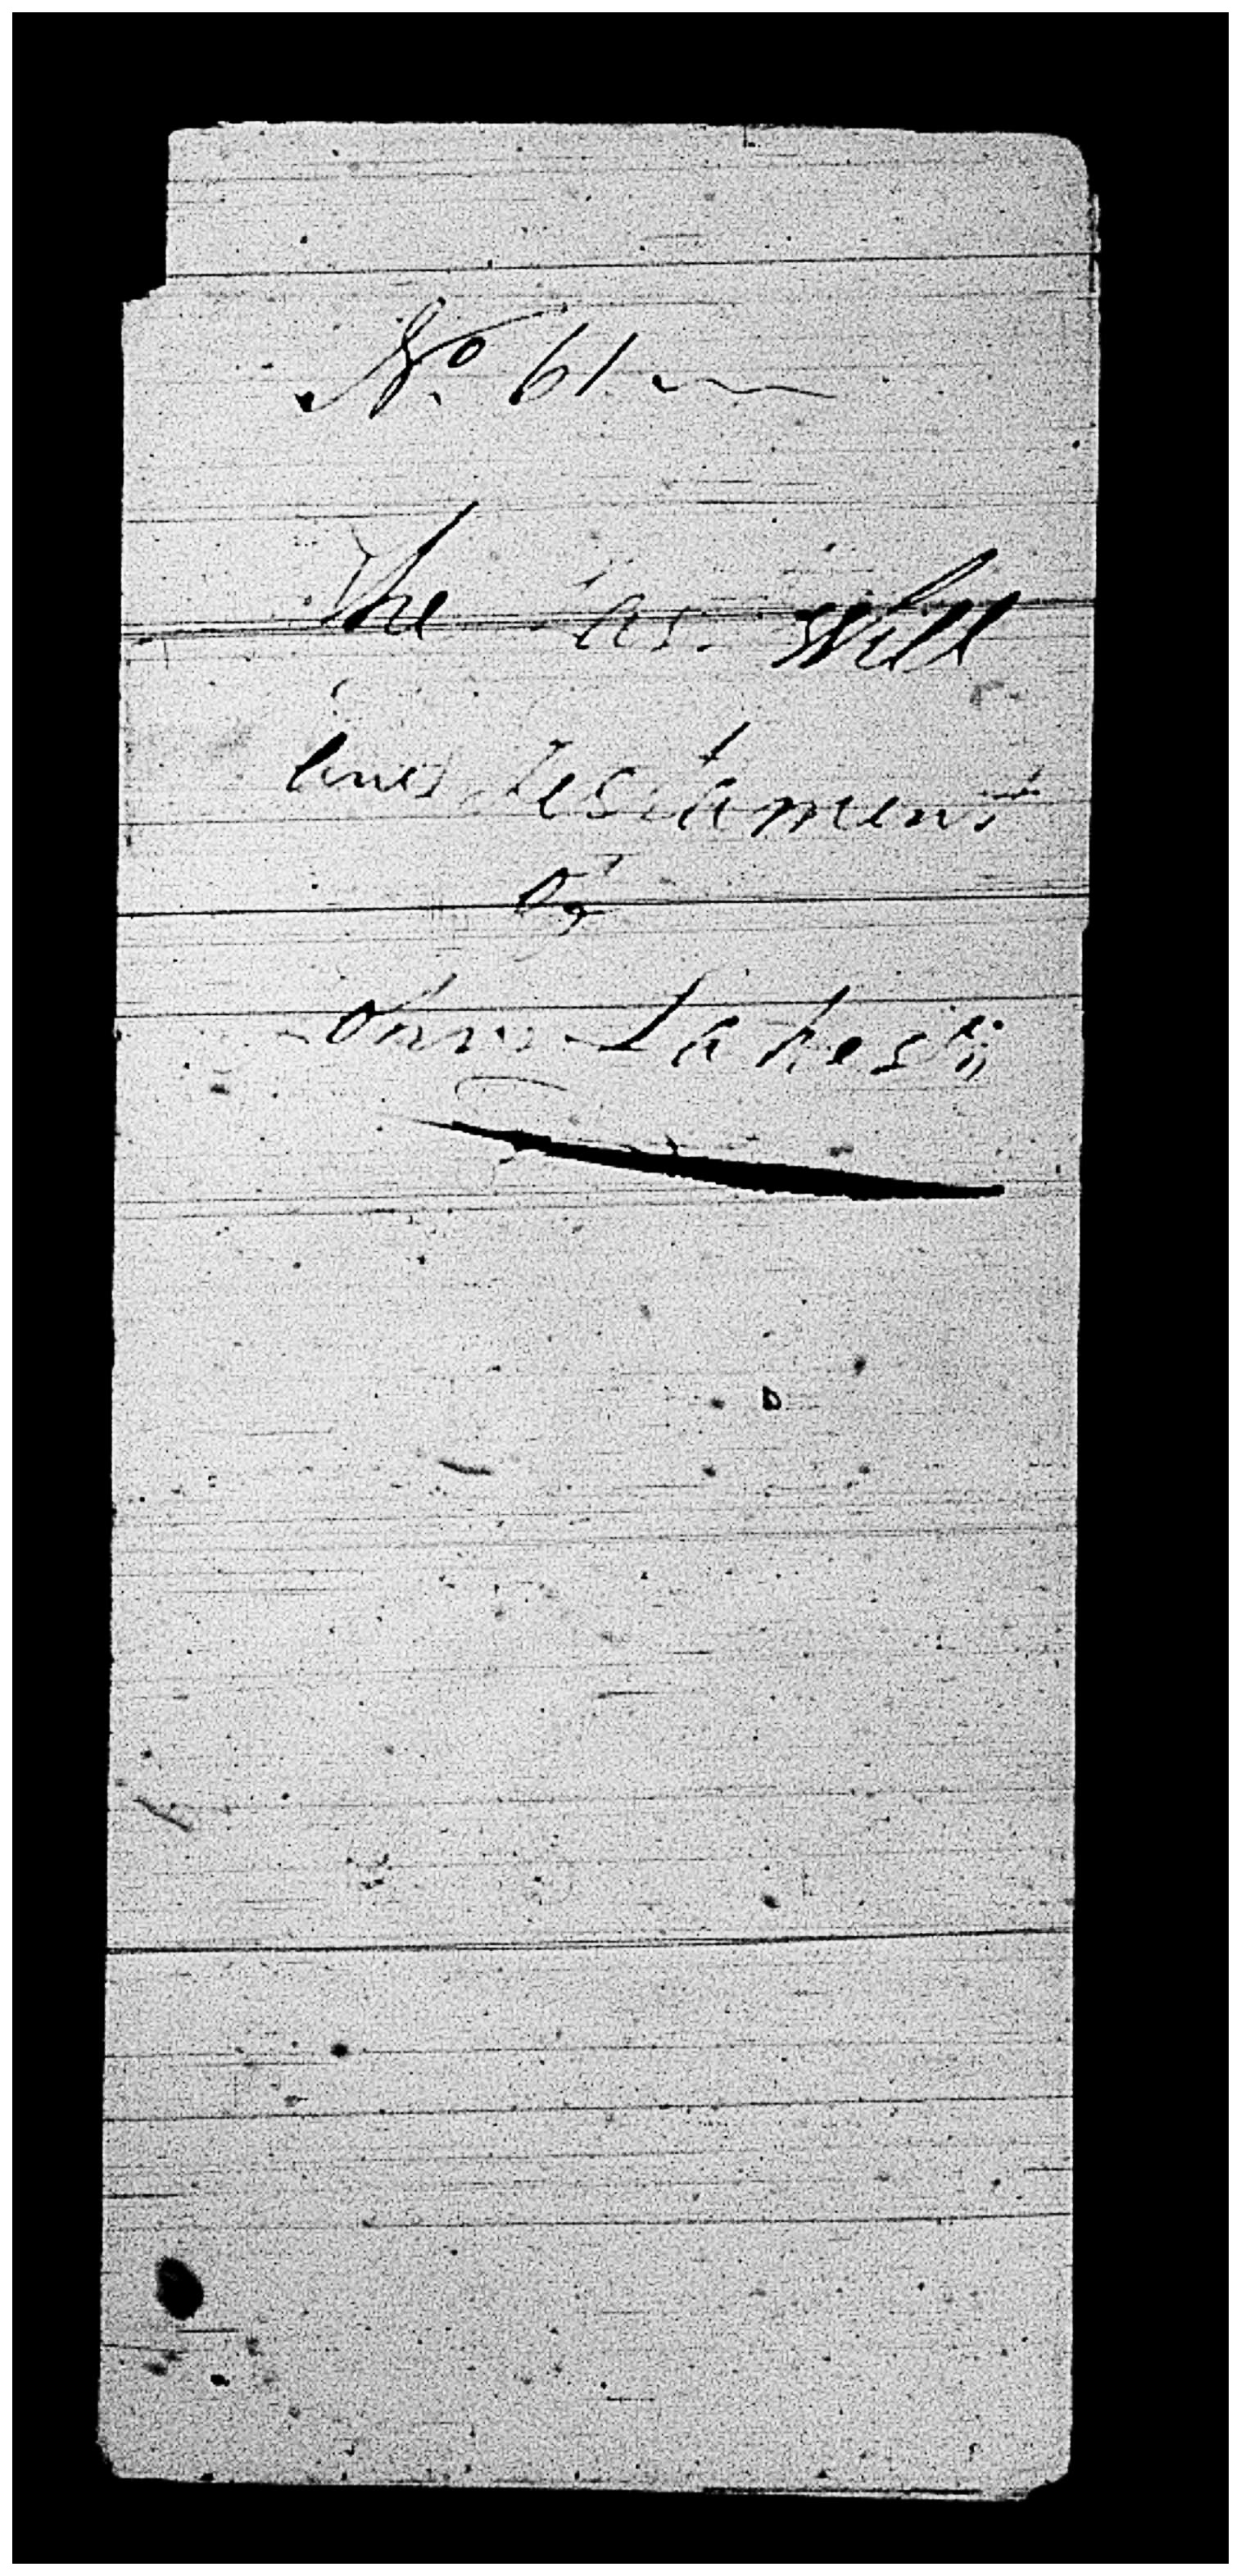 No. 61
The last Will
and Testament
of
John Lakes